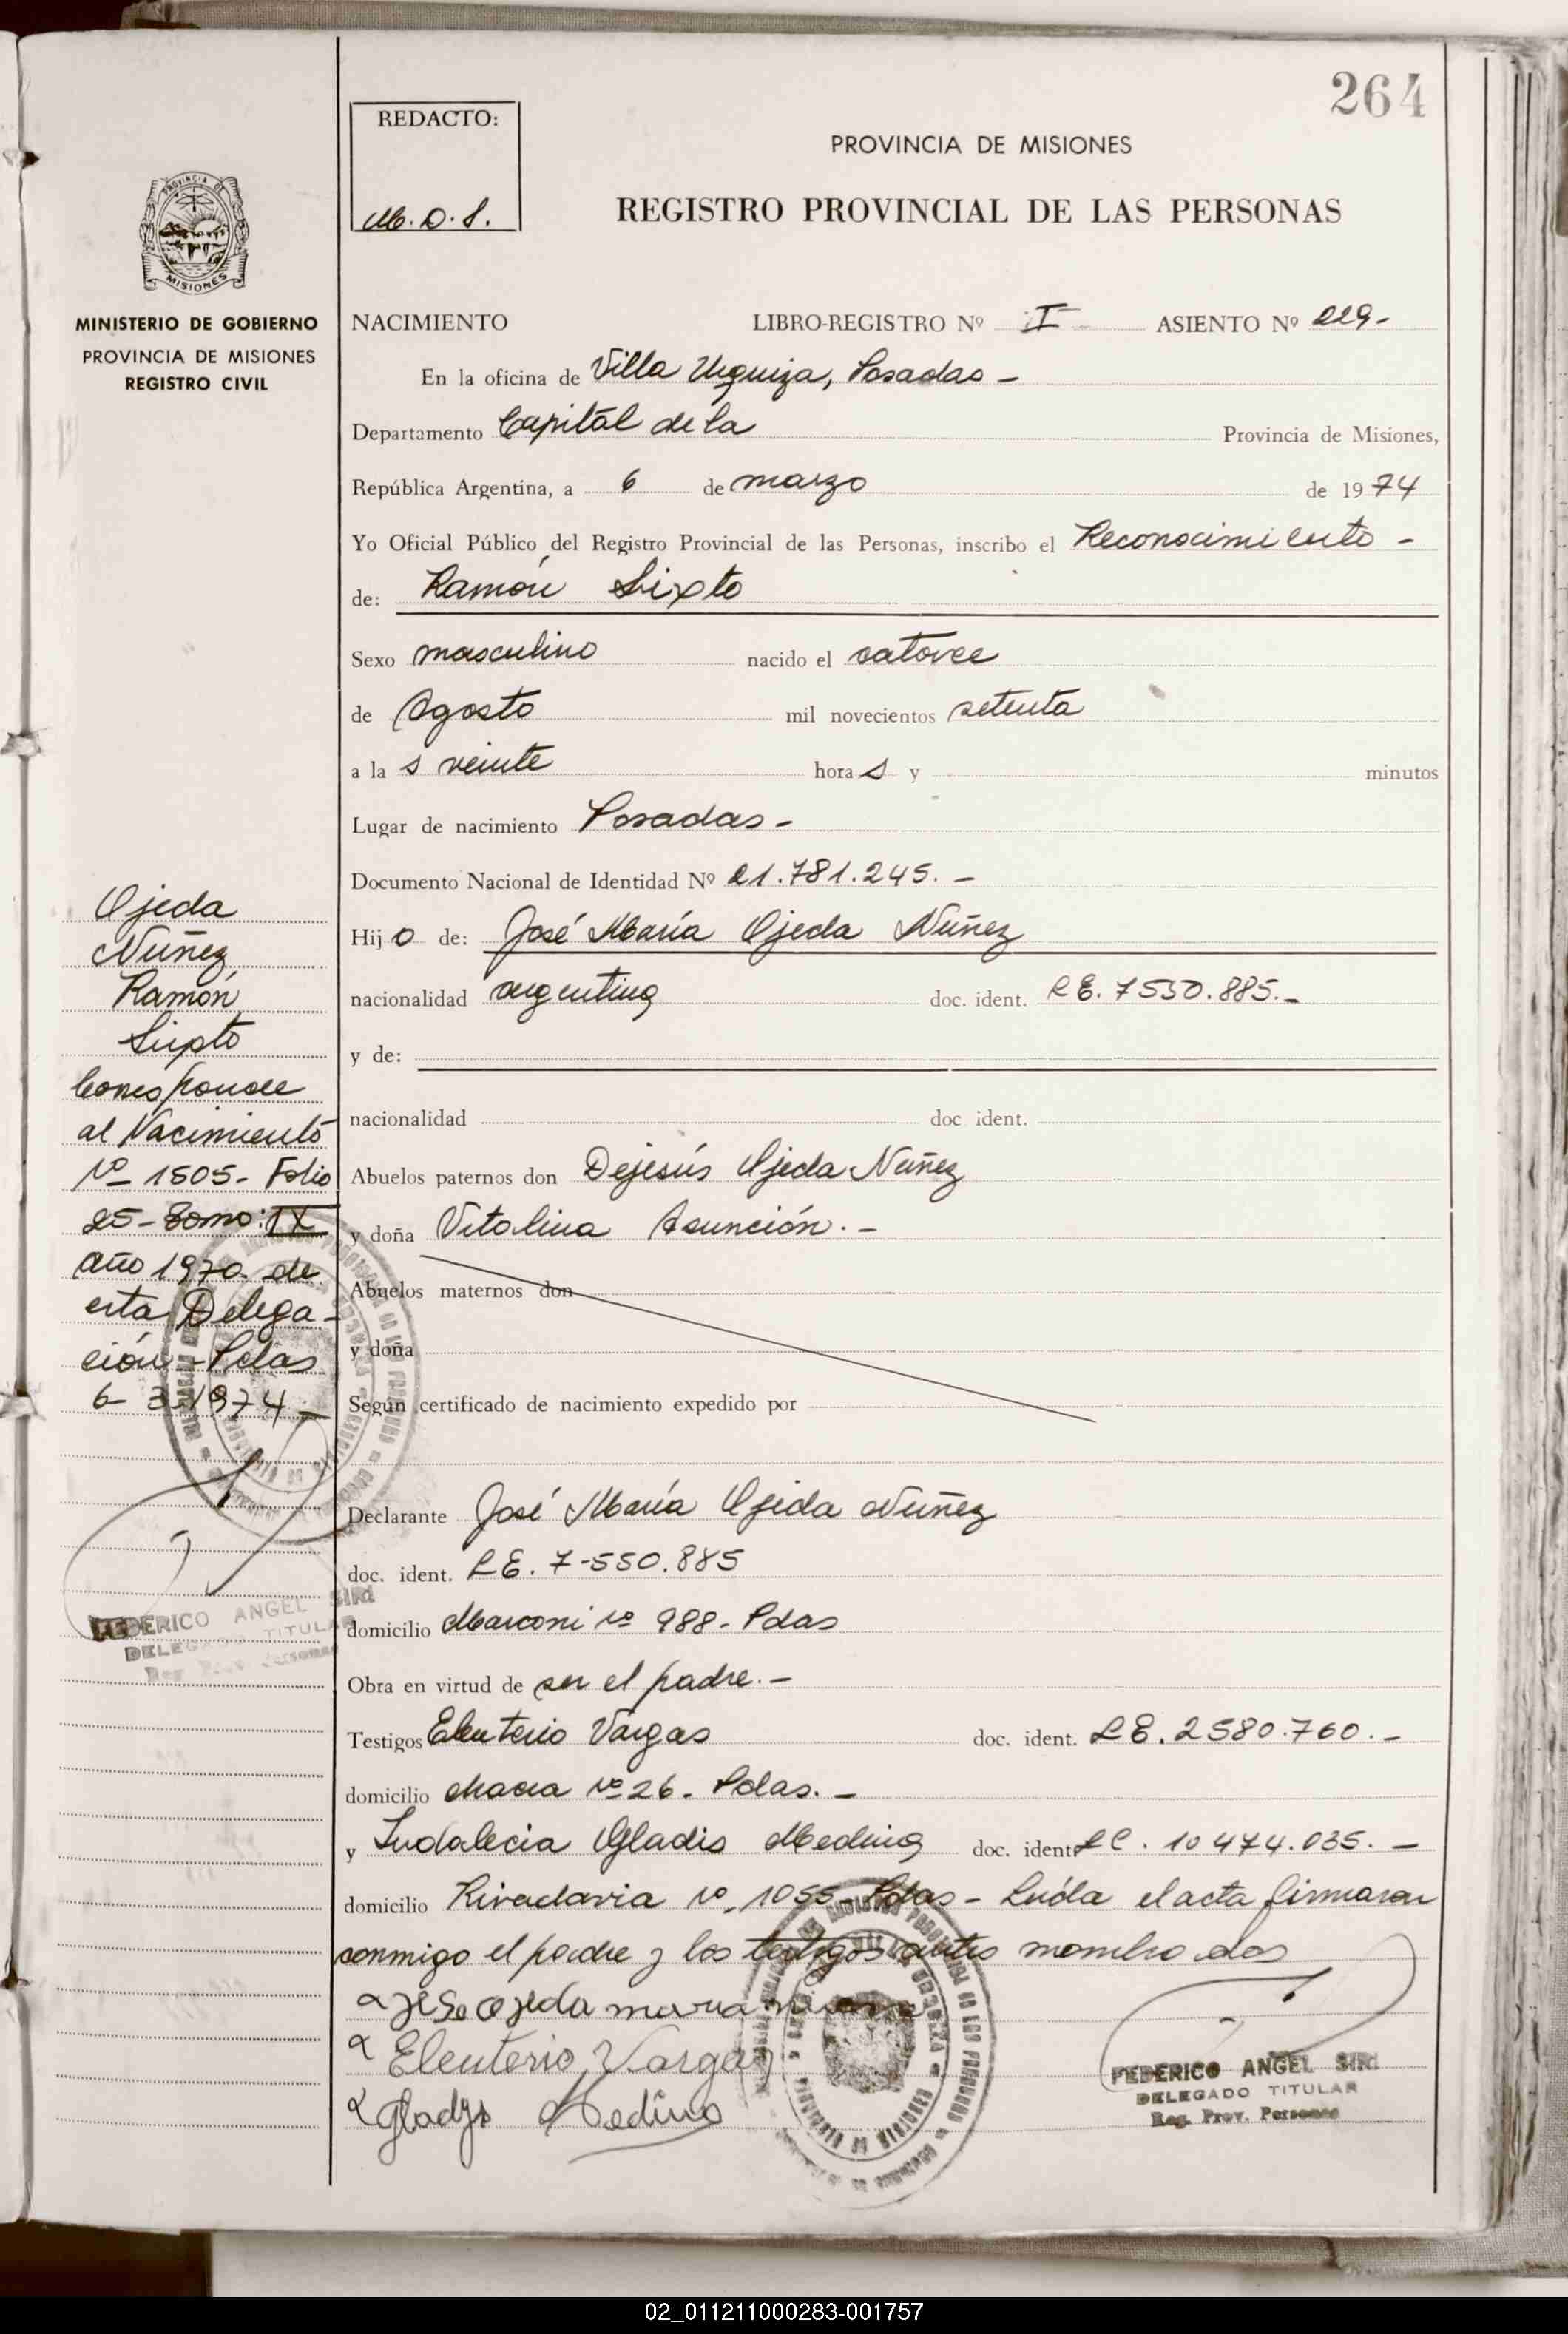 264
REDACTO:
M. D. S.
PROVINCIA DE MISIONES
REGISTRO PROVINCIAL DE LAS PERSONAS
MISIONES
MINISTERIO DE GOBIERNO
PROVINCIA DE MISIONES
REGISTRO CIVIL
NACIMIENTO LIBRO-REGISTRO Nº I ASIENTO Nº 229-
En la oficina de Villa Urquiza, Posadas -
Departamento Capital de la Provincia de Misiones,
República Argentina, a 6 de marzo de 1974
Yo Oficial Público del Registro Provincial de las Personas, inscribo el Reconocimiento -
de: Ramón Sixto
Sexo masculino nacido el catorce
de Agosto mil novecientos setenta
a la s veinte hora s y minutos
Lugar de nacimiento Posadas -
Documento Nacional de Identidad Nº 21.781.245. -
Hijo de: José María Ojeda Nuñez
nacionalidad argentina doc. ident. LE. 7550.885. -
y de:
nacionalidad doc. ident.
Abuelos paternos don Dejesús Ojeda Nuñez
y doña Vitalina Asunción. -
Abuelos maternos don
y doña
Según certificado de nacimiento expedido por
Declarante José María Ojeda Nuñez
doc. ident. LE. 7-550.885
domicilio Marconi Nº 988 - Pdas
Obra en virtud de ser el padre. -
Testigos Eleuterio Vargas doc. ident. LE. 2580.760. -
domicilio chacra Nº 26 - Pdas. -
y Indalecia Gladis Medina doc. ident. LC. 10474.035. -
domicilio Rivadavia Nº 1055 - Pdas - Leída el acta firmaron
conmigo el padre y los testigos antes nombrados
Ojeda maria
Eleuterio Vargas
Gladys Medina
FEDERICO ANGEL SIRI
DELEGADO TITULAR
Reg. Prov. Personas
Ojeda
Nuñez
Ramón
Sixto
Corresponde
al Nacimiento
Nº 1505 - Folio
25 - Tomo: IX
año 1970 de
esta Delega-
ción - Pdas
6-3-1974 -
FEDERICO ANGEL SIRI
DELEGADO TITULAR
Reg. Prov. Personas
02_011211000283-001757